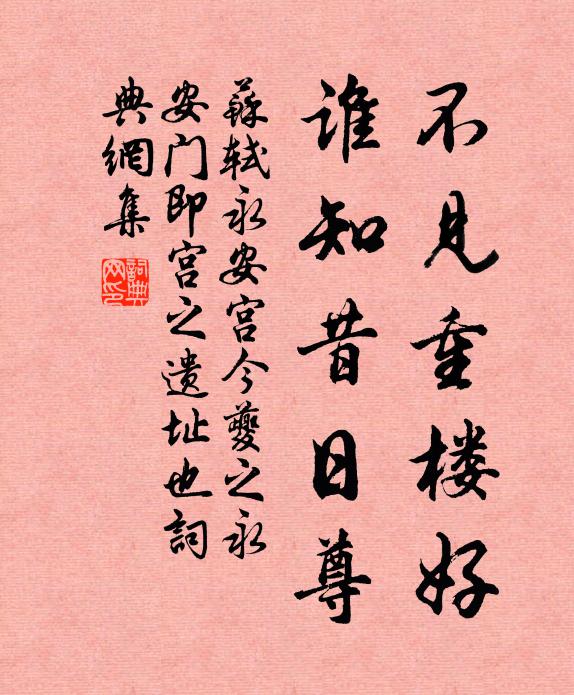 不见重楼好
谁知昔日尊
蘇轼永安宫今夔之永
安门即宫之遗址也詞
典網集
詞典
网印